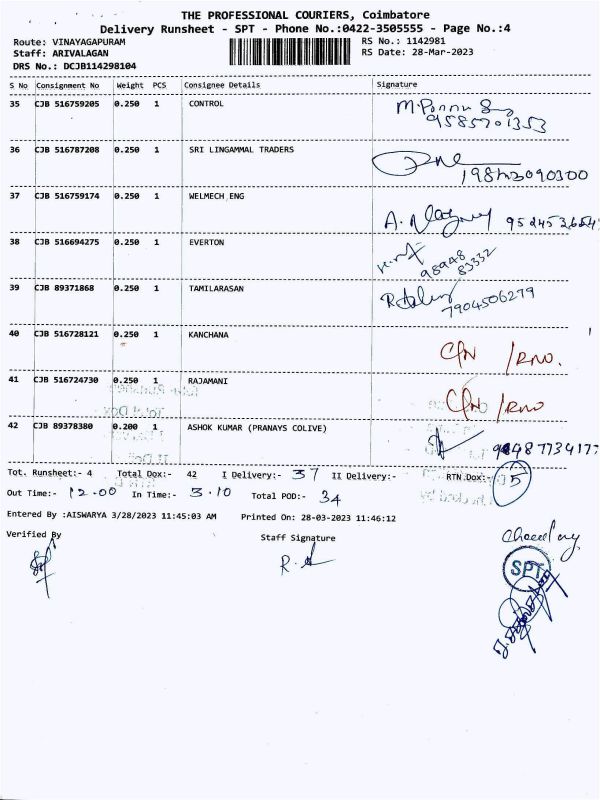 THE PROFESSIONAL COURIERS, Coimbatore
Delivery Runsheet - SPT - Phone No.:0422-3505555 - Page No.:4
Route: VINAYAGAPURAM RS No.: 1142981
Staff: ARIVALAGAN RS Date: 28-Mar-2023
DRS No.: DCJB114298104
S No Consignment No Weight PCS Consignee Details Signature
35 CJB 516759205 0.250 1 CONTROL
9585701353
36 CJB 516787208 0.250 1 SRI LINGAMMAL TRADERS
37 CJB 516759174 0.250 1 WELMECH ENG
38 CJB 516694275 0.250 1 EVERTON
98948
83332
39 CJB 89371868 0.250 1 TAMILARASAN
7904506279
40 CJB 516728121 0.250 1 KANCHANA
41 CJB 516724730 0.250 1 RAJAMANI
42 CJB 89378380 0.200 1 ASHOK KUMAR (PRANAYS COLIVE)
Tot. Runsheet:- 4 Total Dox:- 42 I Delivery:- 37 II Delivery:- RTN.Dox:- 5
Out Time:- 12.00 In Time:- 3.10 Total POD:- 34
Entered By :AISWARYA 3/28/2023 11:45:03 AM Printed On: 28-03-2023 11:46:12
Verified By Staff Signature
SPT